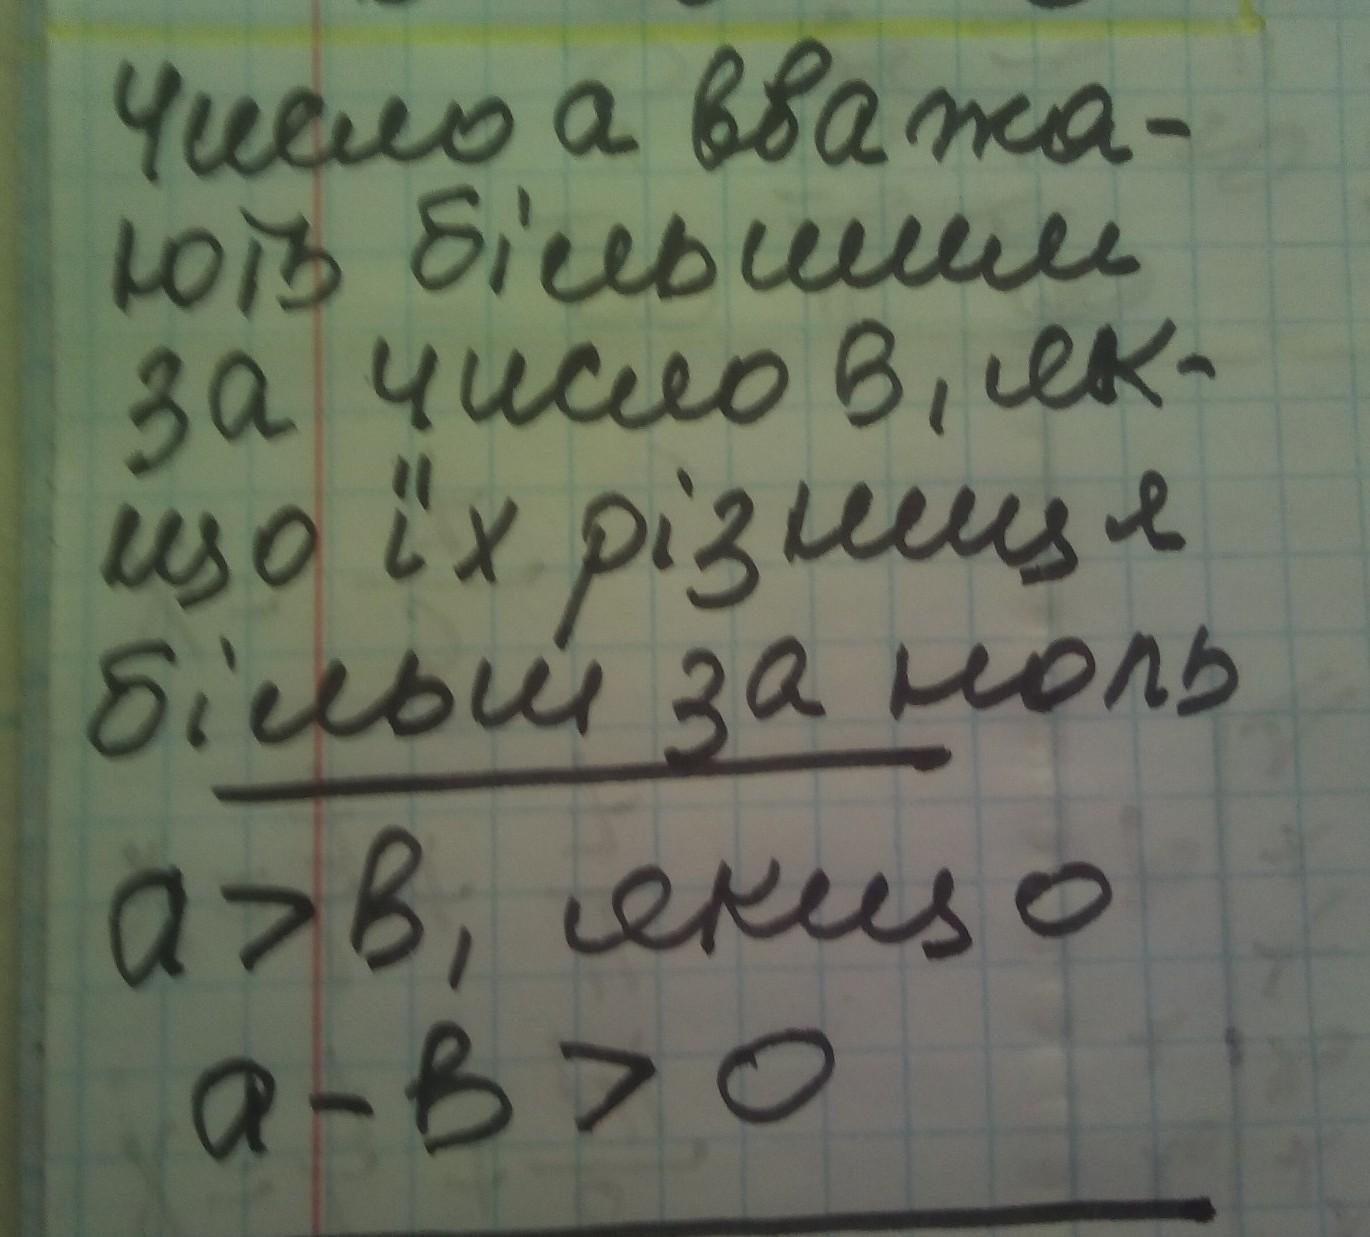 Число а вважа-
ють більшим
за число в, як-
що їх різниця
більш за ноль
а > в, якщо
а - в > 0